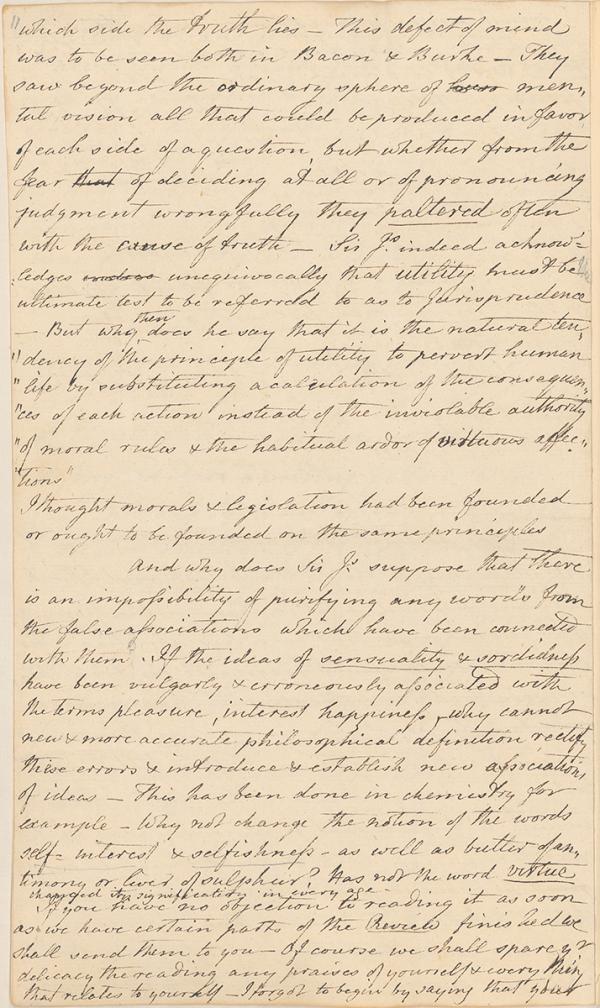 "which side the truth lies – This defect of mind
was to be seen both in Bacon & Burke – They
saw beyond the ordinary sphere of men,,
tal vision all that could be produced in favor
of each side of a question, but whether from the
fear that of deciding at all or of pronouncing
judgment wrongfully they paltered often
with the cause of truth – Sir Js. indeed acknow-
:ledges unequivocally that utility must be
ultimate test to be referred to as to Jurisprudence
– But why then does he say that it is the natural ten,,
"dency of the principle of utility to pervert human
"life by substituting a calculation of the consequen,,
"ces of each action instead of the inviolable authority
"of moral rules & the habitual ardor of virtuous affec,,
"tions"
I thought morals & legislation had been founded
or ought to be founded on the same principles
And why does Sir Js. suppose that there
is an impossibility of purifying any words from
the false associations which have been connected
with them. If the ideas of sensuality & sordidness
have been vulgarly & erroneously associated with
the terms pleasure, interest happiness, why cannot
new & more accurate philosophical definition rectify
these errors & introduce & establish new associations
of ideas – This has been done in chemistry for
example – Why not change the notion of the words
self-interest & selfishness – as well as butter of an,,
timony or liver of sulphur? Has not the word virtue
changed its signification in every age –
If you have no objection to reading it as soon
as we have certain parts of the Review finished we
shall send them to you – Of course we shall spare yr
delicacy the reading any praises of yourself & every thing
that relates to yourself – I forgot to begin by saying that your